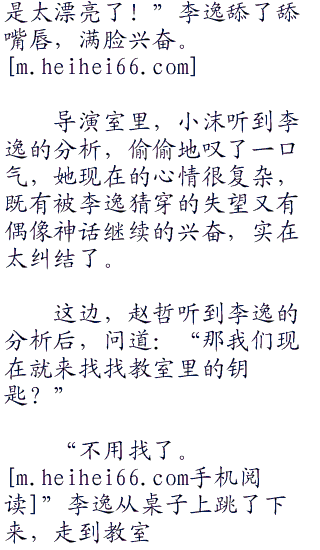 是太漂亮了！”李逸舔了舔
嘴唇，满脸兴奋。
[m.heihei66.com]
导演室里，小沫听到李
逸的分析，偷偷地叹了一口
气，她现在的心情很复杂，
既有被李逸猜穿的失望又有
偶像神话继续的兴奋，实在
太纠结了。
这边，赵哲听到李逸的
分析后，问道：“那我们现
在就来找找教室里的钥
匙？”
“不用找了。
[m.heihei66.com手机阅
读]”李逸从桌子上跳了下
来，走到教室